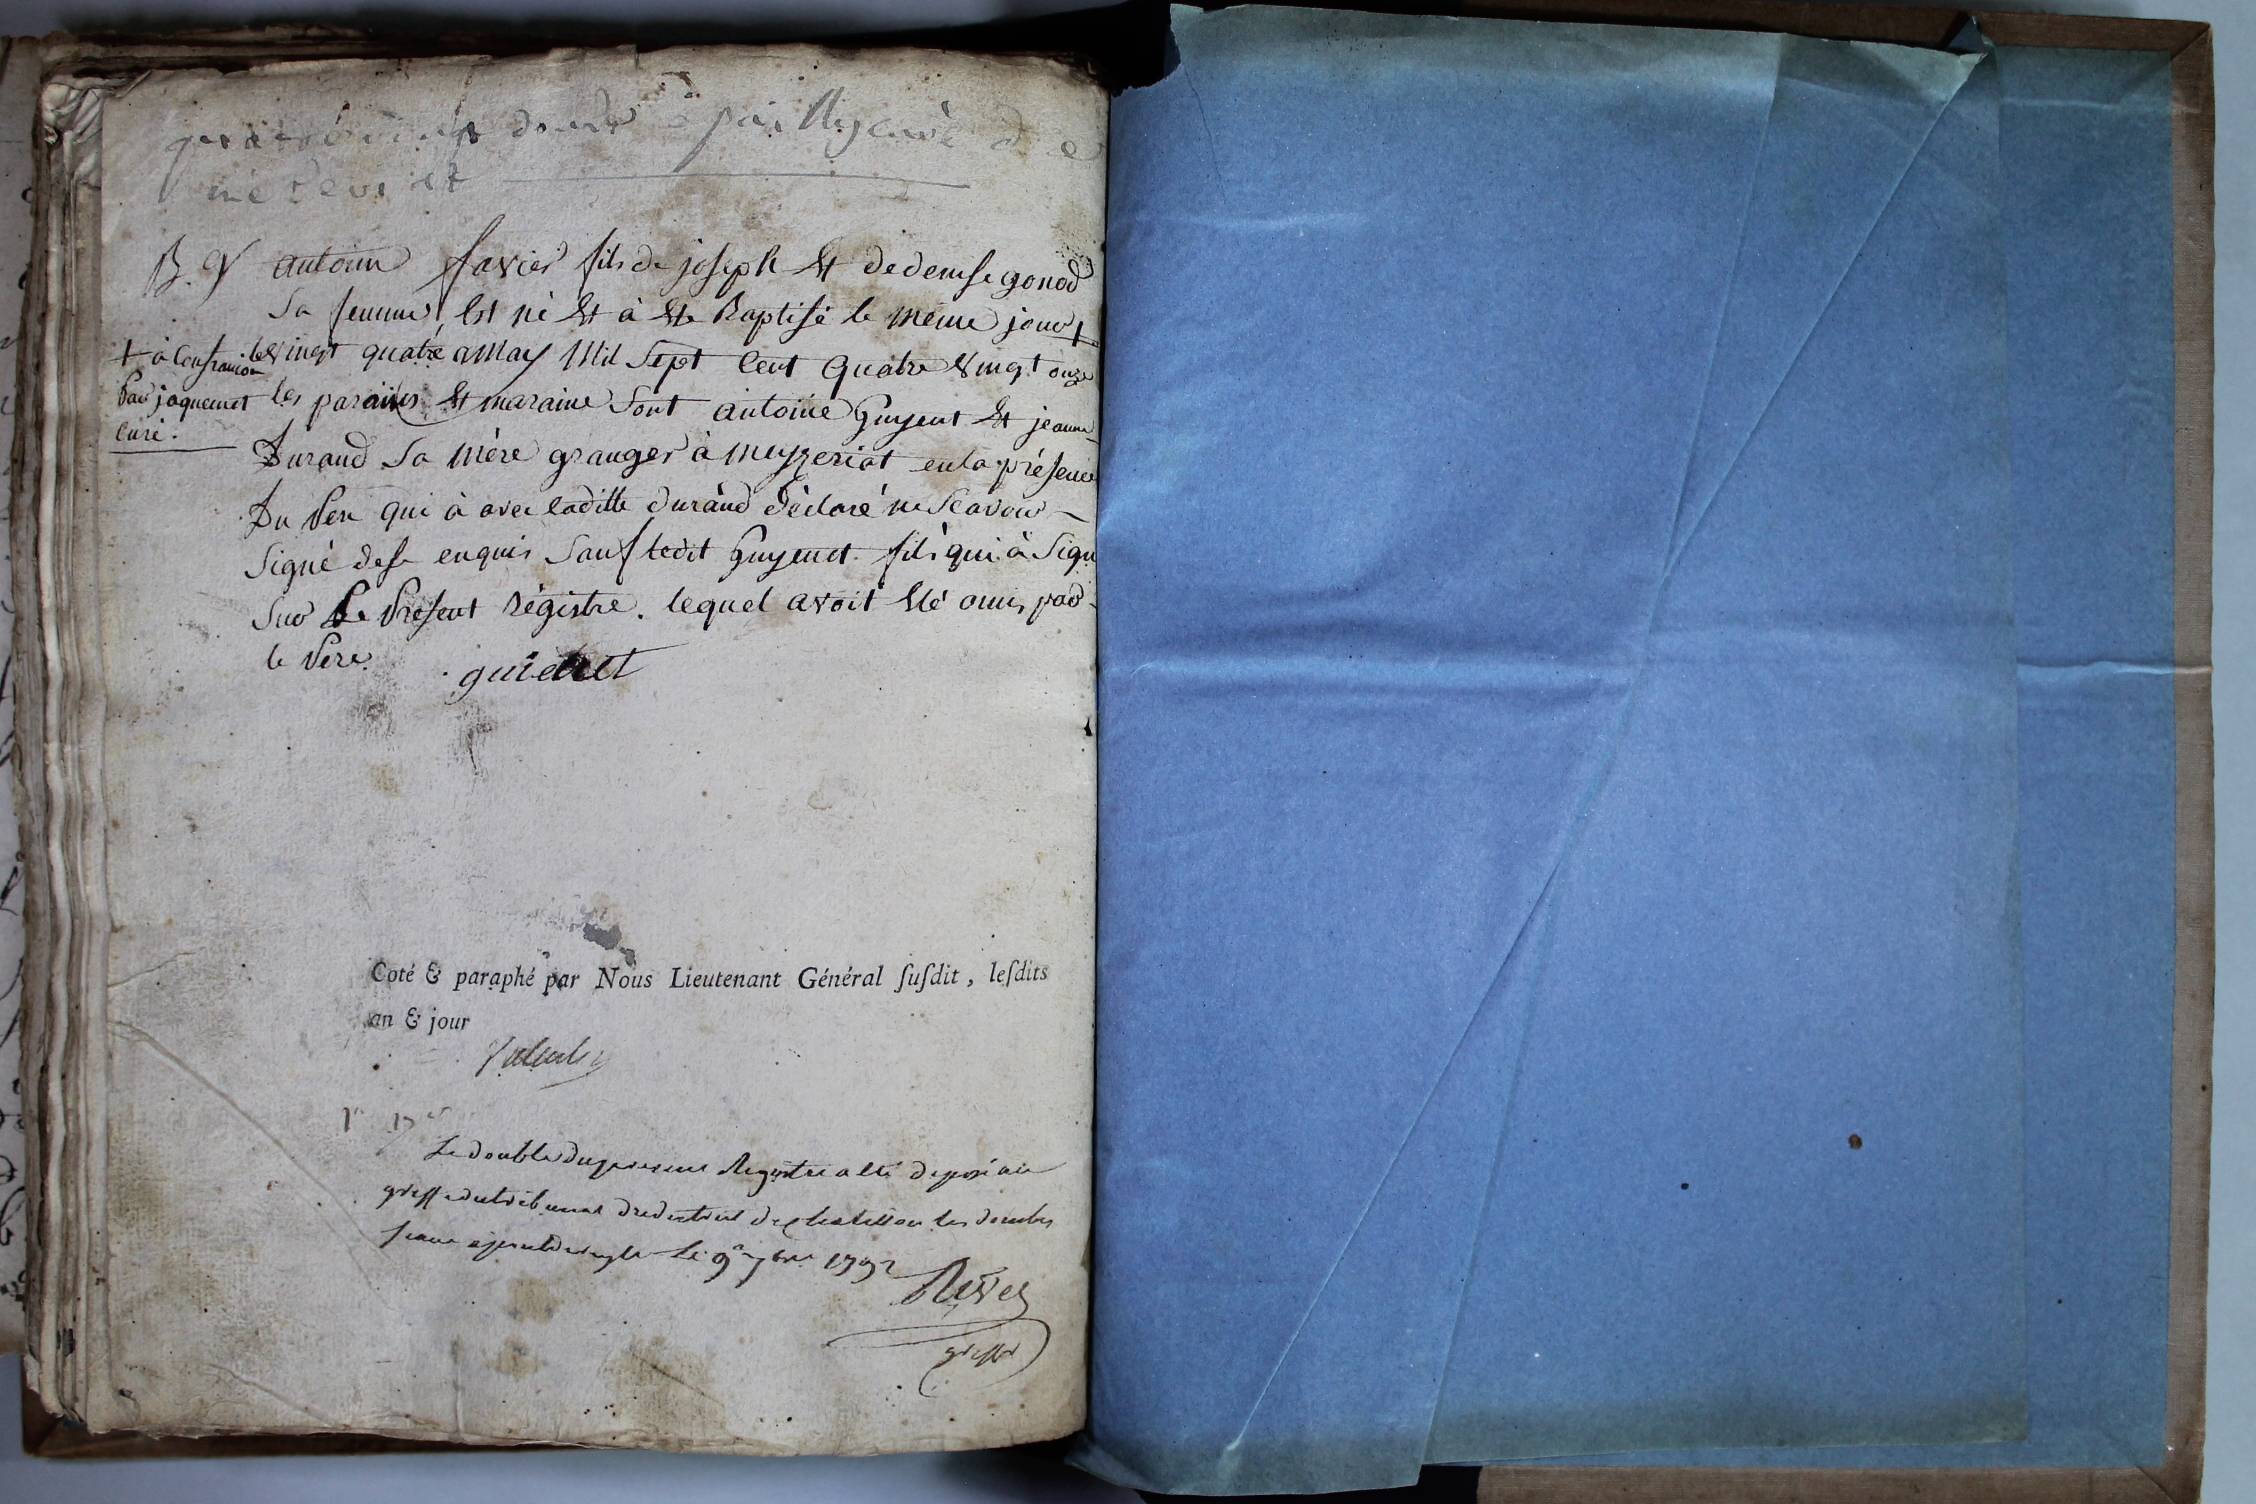 B. antoine favier fils de joseph Et de denise gonod
Sa femme Est né Et à Ete Baptisé le même jour +
le vingt quatre may Mil Sept Cent Quatre vingt onze
+ à Confrançon
Par joquemet
curé.
les parains Et maraine Sont antoine Guyenet Et jeanne
Durand Sa mère granger à meyzeriat en la présence
Du Pere qui à avec laditte durand déclaré ne Scavoir
Signé de ce enquis Sauf ledit Guyenet fils qui à Signé
Sur Le Présent régistre. lequel avoit Eté omis par
le Pere.
guienet
Coté & paraphé par Nous Lieutenant Général ſuſdit, leſdits
an & jour
Le double du present Registre a eté deposé au
greffe du tribunal du district de chatillon les dombes
Le 9 7bre 1792
greffier